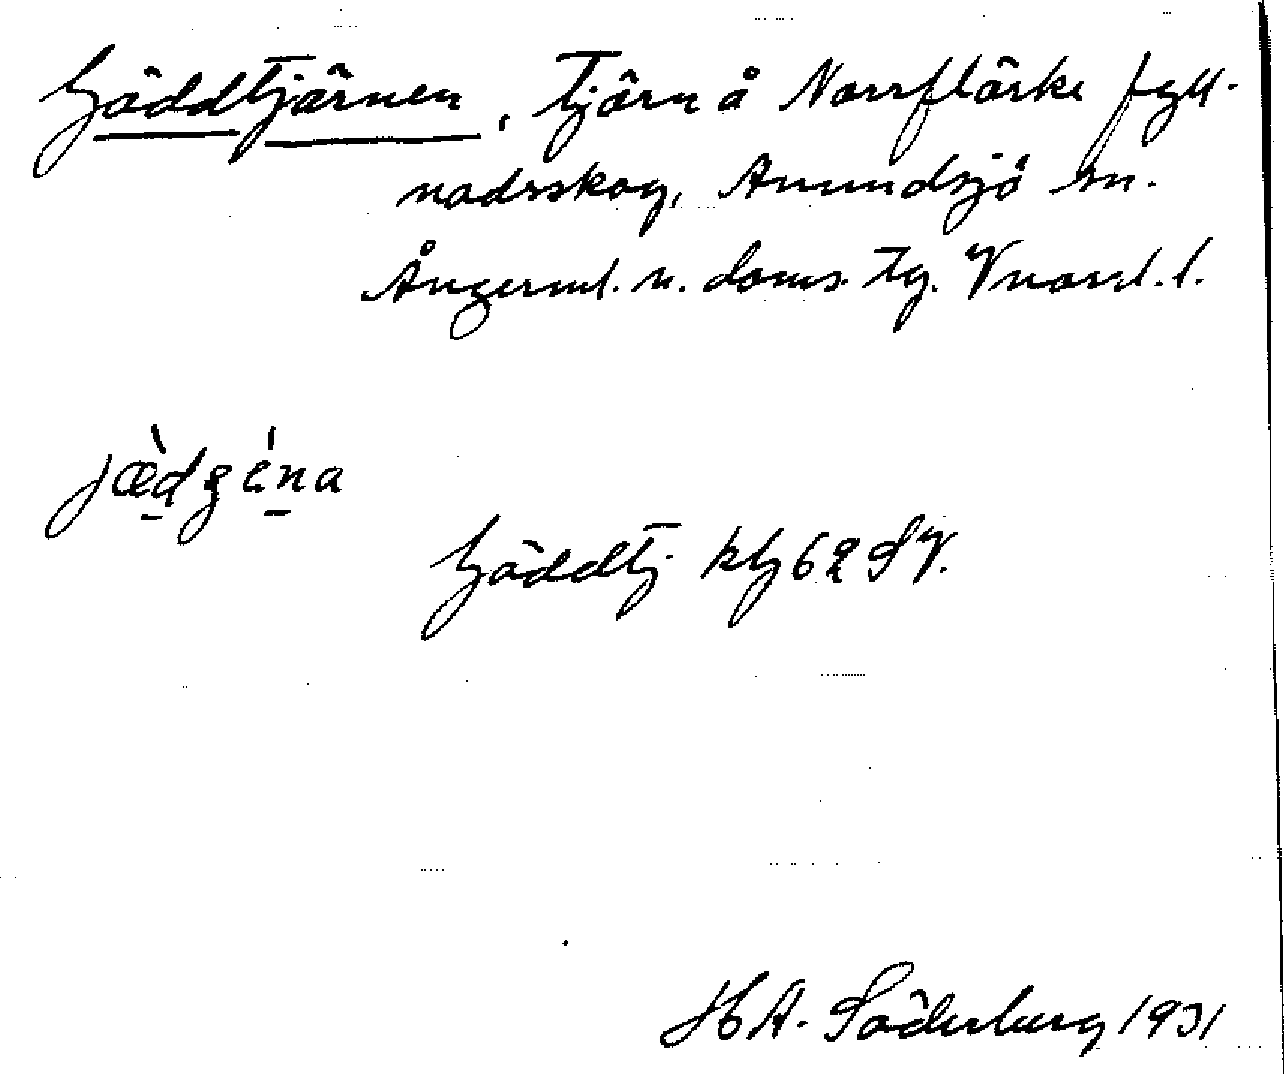 Gäddtjärnen, Tjärn å Norrflärke fyll-
nadsskog, Anundsjö sn.
Ångerml. n. doms. tg. Vnorrl. l.
jæ̀dgéna
Gäddtj kbl 62 SV.
H A. Söderberg 1931